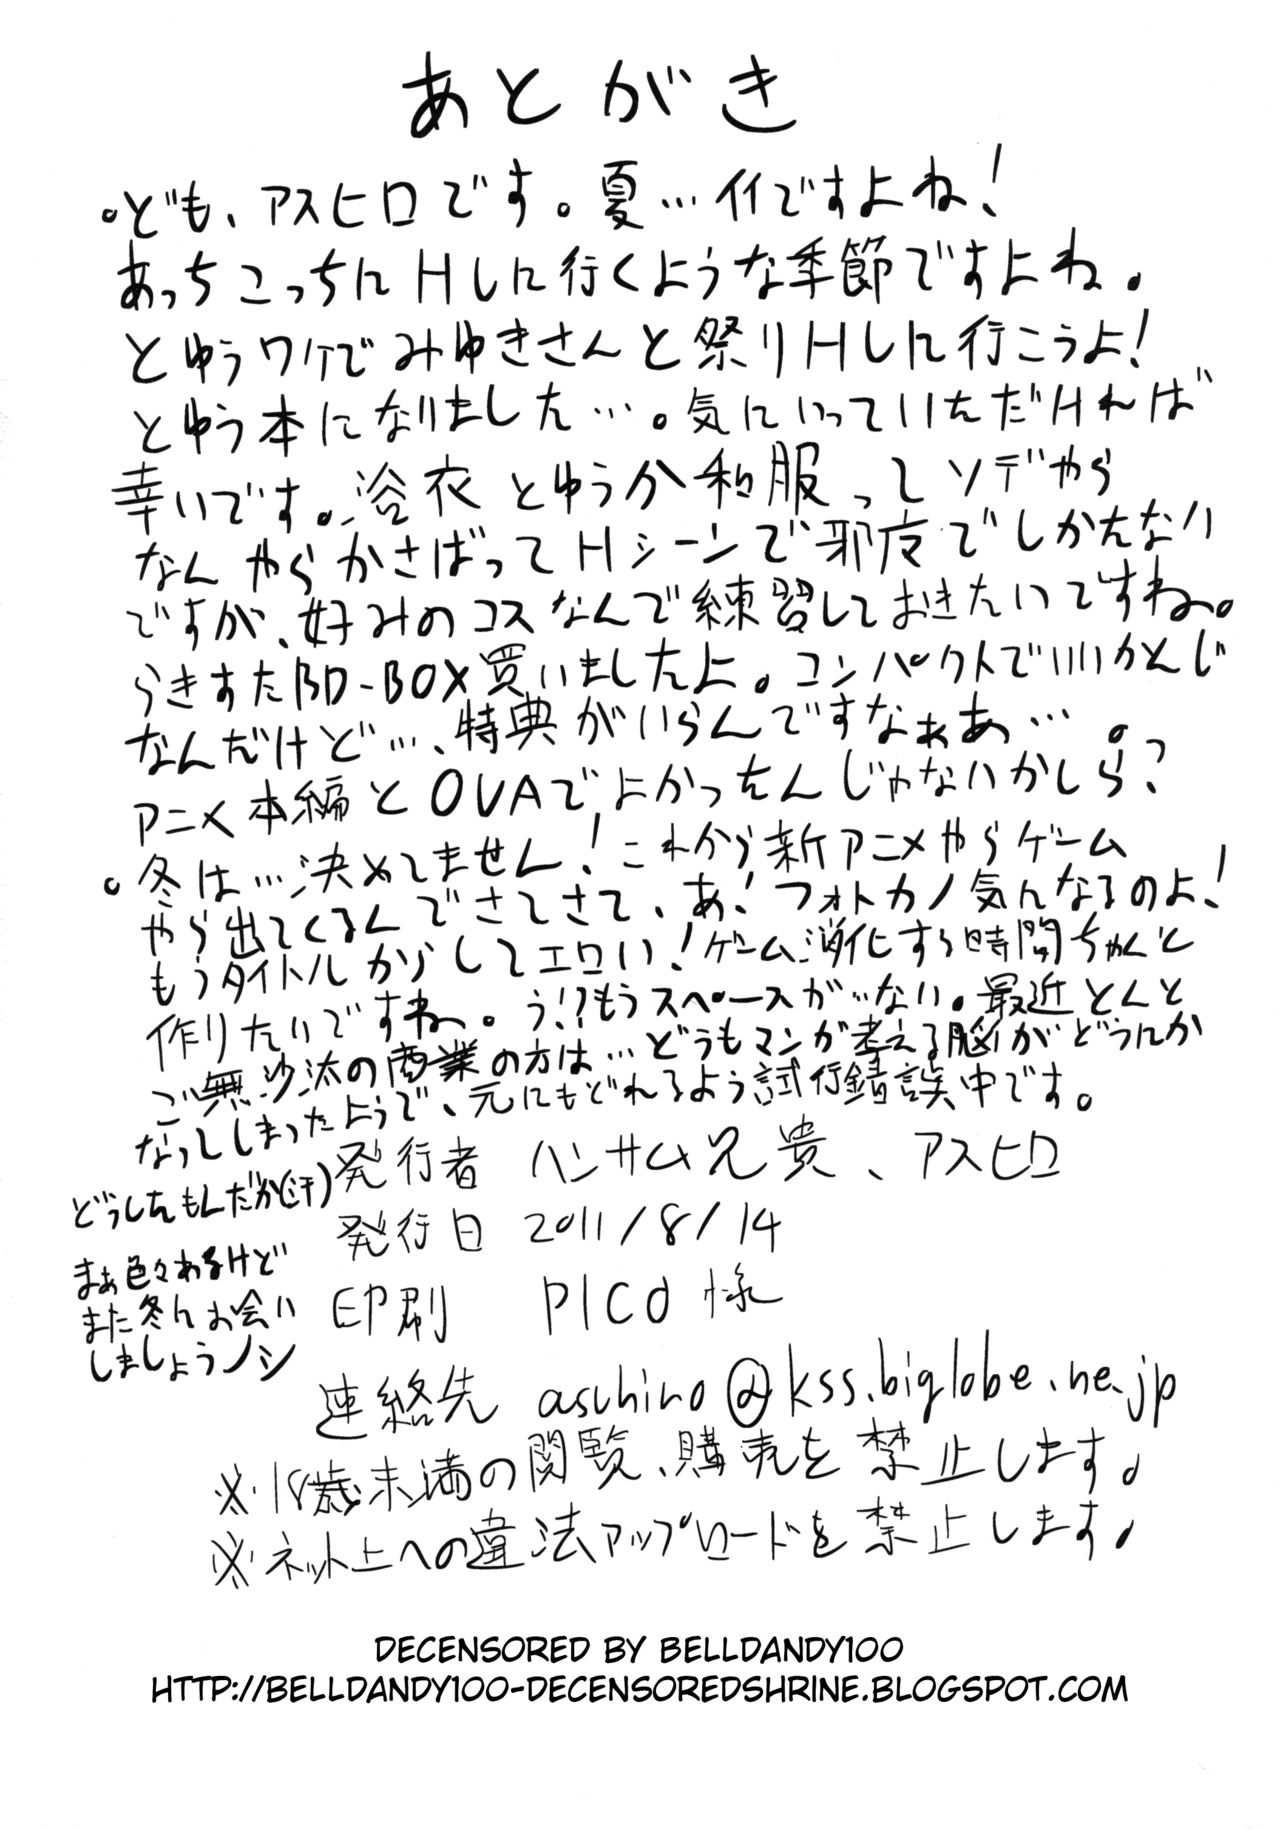 あとがき
。ども、アスヒロです。夏…イイですよね!
あっちこっちにHしに行くような季節ですよね。
とゆうワケでみゆきさんと祭りHしに行こうよ!
とゆう本になりました…。気にいっていただければ
幸いです。浴衣とゆうか和服ってソデやら
なんやらかさばってHシーンで邪魔でしかたない
ですが、好みのコスなんで練習しておきたいですね。
らきすたBD-BOX買いましたよ。コンパクトでいいかんじ
なんだけど…、特典がいらんですなぁあ…。
アニメ本編とOVAでよかったんじゃないかしら?
。冬は…決めてません!これから新アニメやらゲーム
やら出てくるんでさてさて、あ!フォトカノ気になるのよ!
もうタイトルからしてエロい!ゲーム消化する時間ちゃんと
作りたいですねー。う!?もうスペースがない。最近とんと
ご無沙汰の商業の方は…どうもマンガ考える脳がどうにか
なってしまったようで、元にもどれるよう試行錯誤中です。
どうしたもんだか(汗)
まぁ色々あるけど
また冬にお会い
しましょうノシ
発行者 ハンサム兄貴、アスヒロ
発行日 2011/8/14
印刷 PICO様
連絡先 asuhiro@kss.biglobe.ne.jp
※18歳未満の閲覧、購売を禁止します。
※ネット上への違法アップロードを禁止します。
DECENSORED BY BELLDANDY100
HTTP://BELLDANDY100-DECENSOREDSHRINE.BLOGSPOT.COM